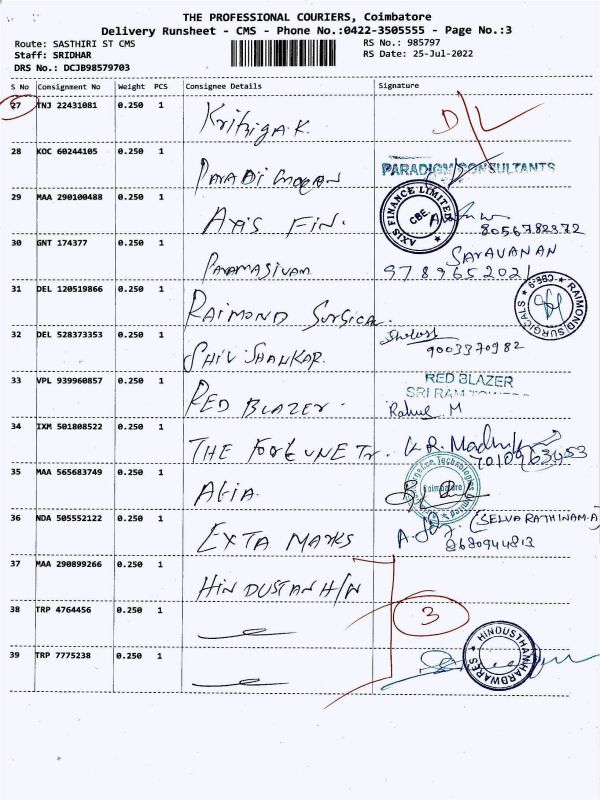 THE PROFESSIONAL COURIERS, Coimbatore
Delivery Runsheet - CMS - Phone No.:0422-3505555 - Page No.:3
Route: SASTHIRI ST CMS
RS No.: 985797
Staff: SRIDHAR
RS Date: 25-Jul-2022
DRS No.: DCJB98579703
S No Consignment No Weight PCS Consignee Details Signature
27 TNJ 22431081 0.250 1 Krithiga.K. D/L
28 KOC 60244105 0.250 1
PARADIGM CONSULTANTS
29 MAA 290100488 0.250 1 AXIS FIN.
AXIS FINANCE LIMITED CBE.
8056782372
30 GNT 174377 0.250 1 Paramasivam
SARAVANAN
9789652021
31 DEL 120519866 0.250 1 RAIMOND SURGICAL.
RAIMOND SURGICALS CBE.9
32 DEL 528373353 0.250 1 SHIV SHANKAR.
9003370982
33 VPL 939960857 0.250 1 RED BLAZER.
RED BLAZER
SRI RAM
Rahul. M
34 IXM 501808522 0.250 1 THE FORTUNE Tr. K.R.
35 MAA 565683749 0.250 1
Coimbatore
36 NDA 505552122 0.250 1 EXTA MARKS
(SELVARATHINAM.A)
8680944813
37 MAA 290899266 0.250 1 HINDUSTAN H/W
38 TRP 4764456 0.250 1
3
39 TRP 7775238 0.250 1
HINDUSTHAN HARDWARES